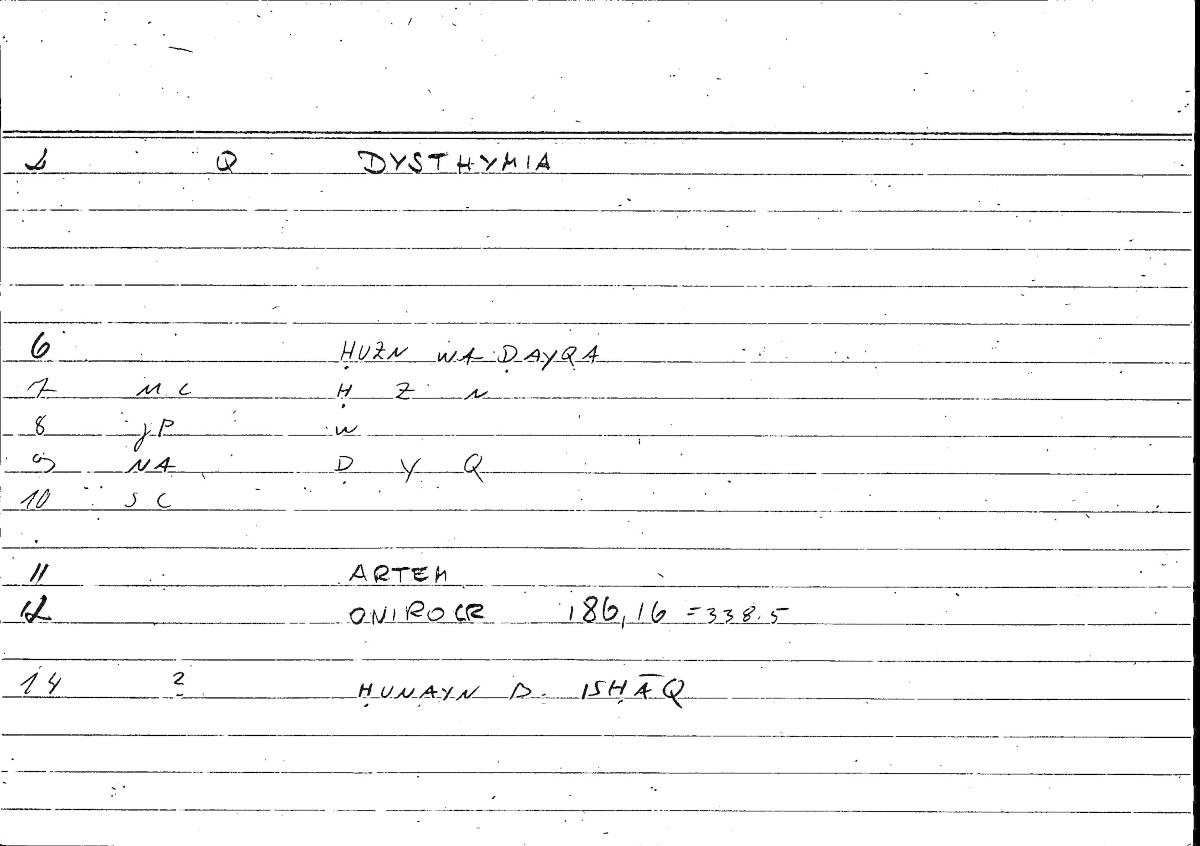 1 Q DYSTHYMIA
6 ḤUZN WA ḌAYQA
7 MC Ḥ Z N
8 JP W
9 NA Ḍ Y Q
10 SC
11 ARTEM
12 ONIROCR 186,16 = 338.5
14 2 ḤUNAYN B. ISḤĀQ